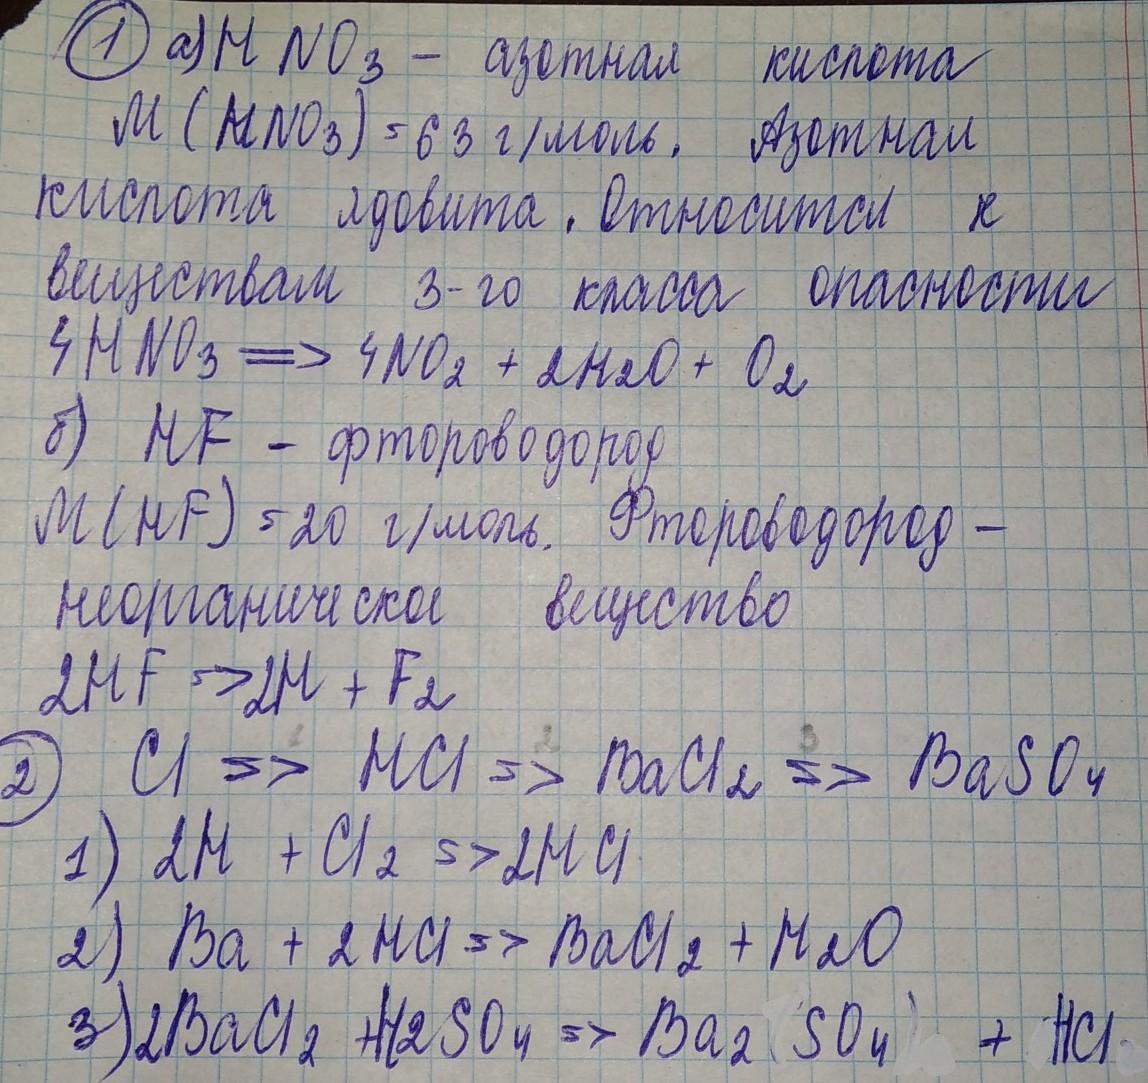 1 а) HNO3 – азотная кислота
M(HNO3) = 63 г/моль. Азотная
кислота ядовита. Относится к
веществам 3-го класса опасности
4HNO3 => 4NO2 + 2H2O + O2
б) HF – фтороводород
M(HF) = 20 г/моль. Фтороводород –
неорганическое вещество
2HF => 2H + F2
1 2 3
2 Cl => HCl => BaCl2 => BaSO4
1) 2H + Cl2 => 2HCl
2) Ba + 2HCl => BaCl2 + H2O
3) 2BaCl2 + H2SO4 => Ba2(SO4) + HCl